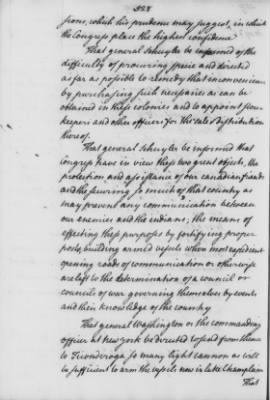 328
sions, which his prudence may suggest, in which
the Congress place the highest confidence
That general Schuyler be informed of the
difficulty of procuring specie and directed
as far as possible to remedy that inconvenience
by purchasing such necessaries as can be
obtained in these colonies and to appoint store
keepers and other officers for the sale & distribution
thereof.
That general Schuyler be informed that
congress have in view these two great objects, the
protection and assistance of our canadian friends
and the securing so much of that country as
may prevent any communication between
our enemies and the indians; the means of
effecting these purposes by fortifying proper
posts, building armed vessels where most expedient
opening roads of communication or otherwise
are left to the determination of a council or
councils of war governing themselves by events
and their knowledge of the country
That general Washington or the commanding
officer at new york be directed to send from thence
to Ticonderoga so many light cannon as will
be sufficient to arm the vessels now in lake Champlain
That